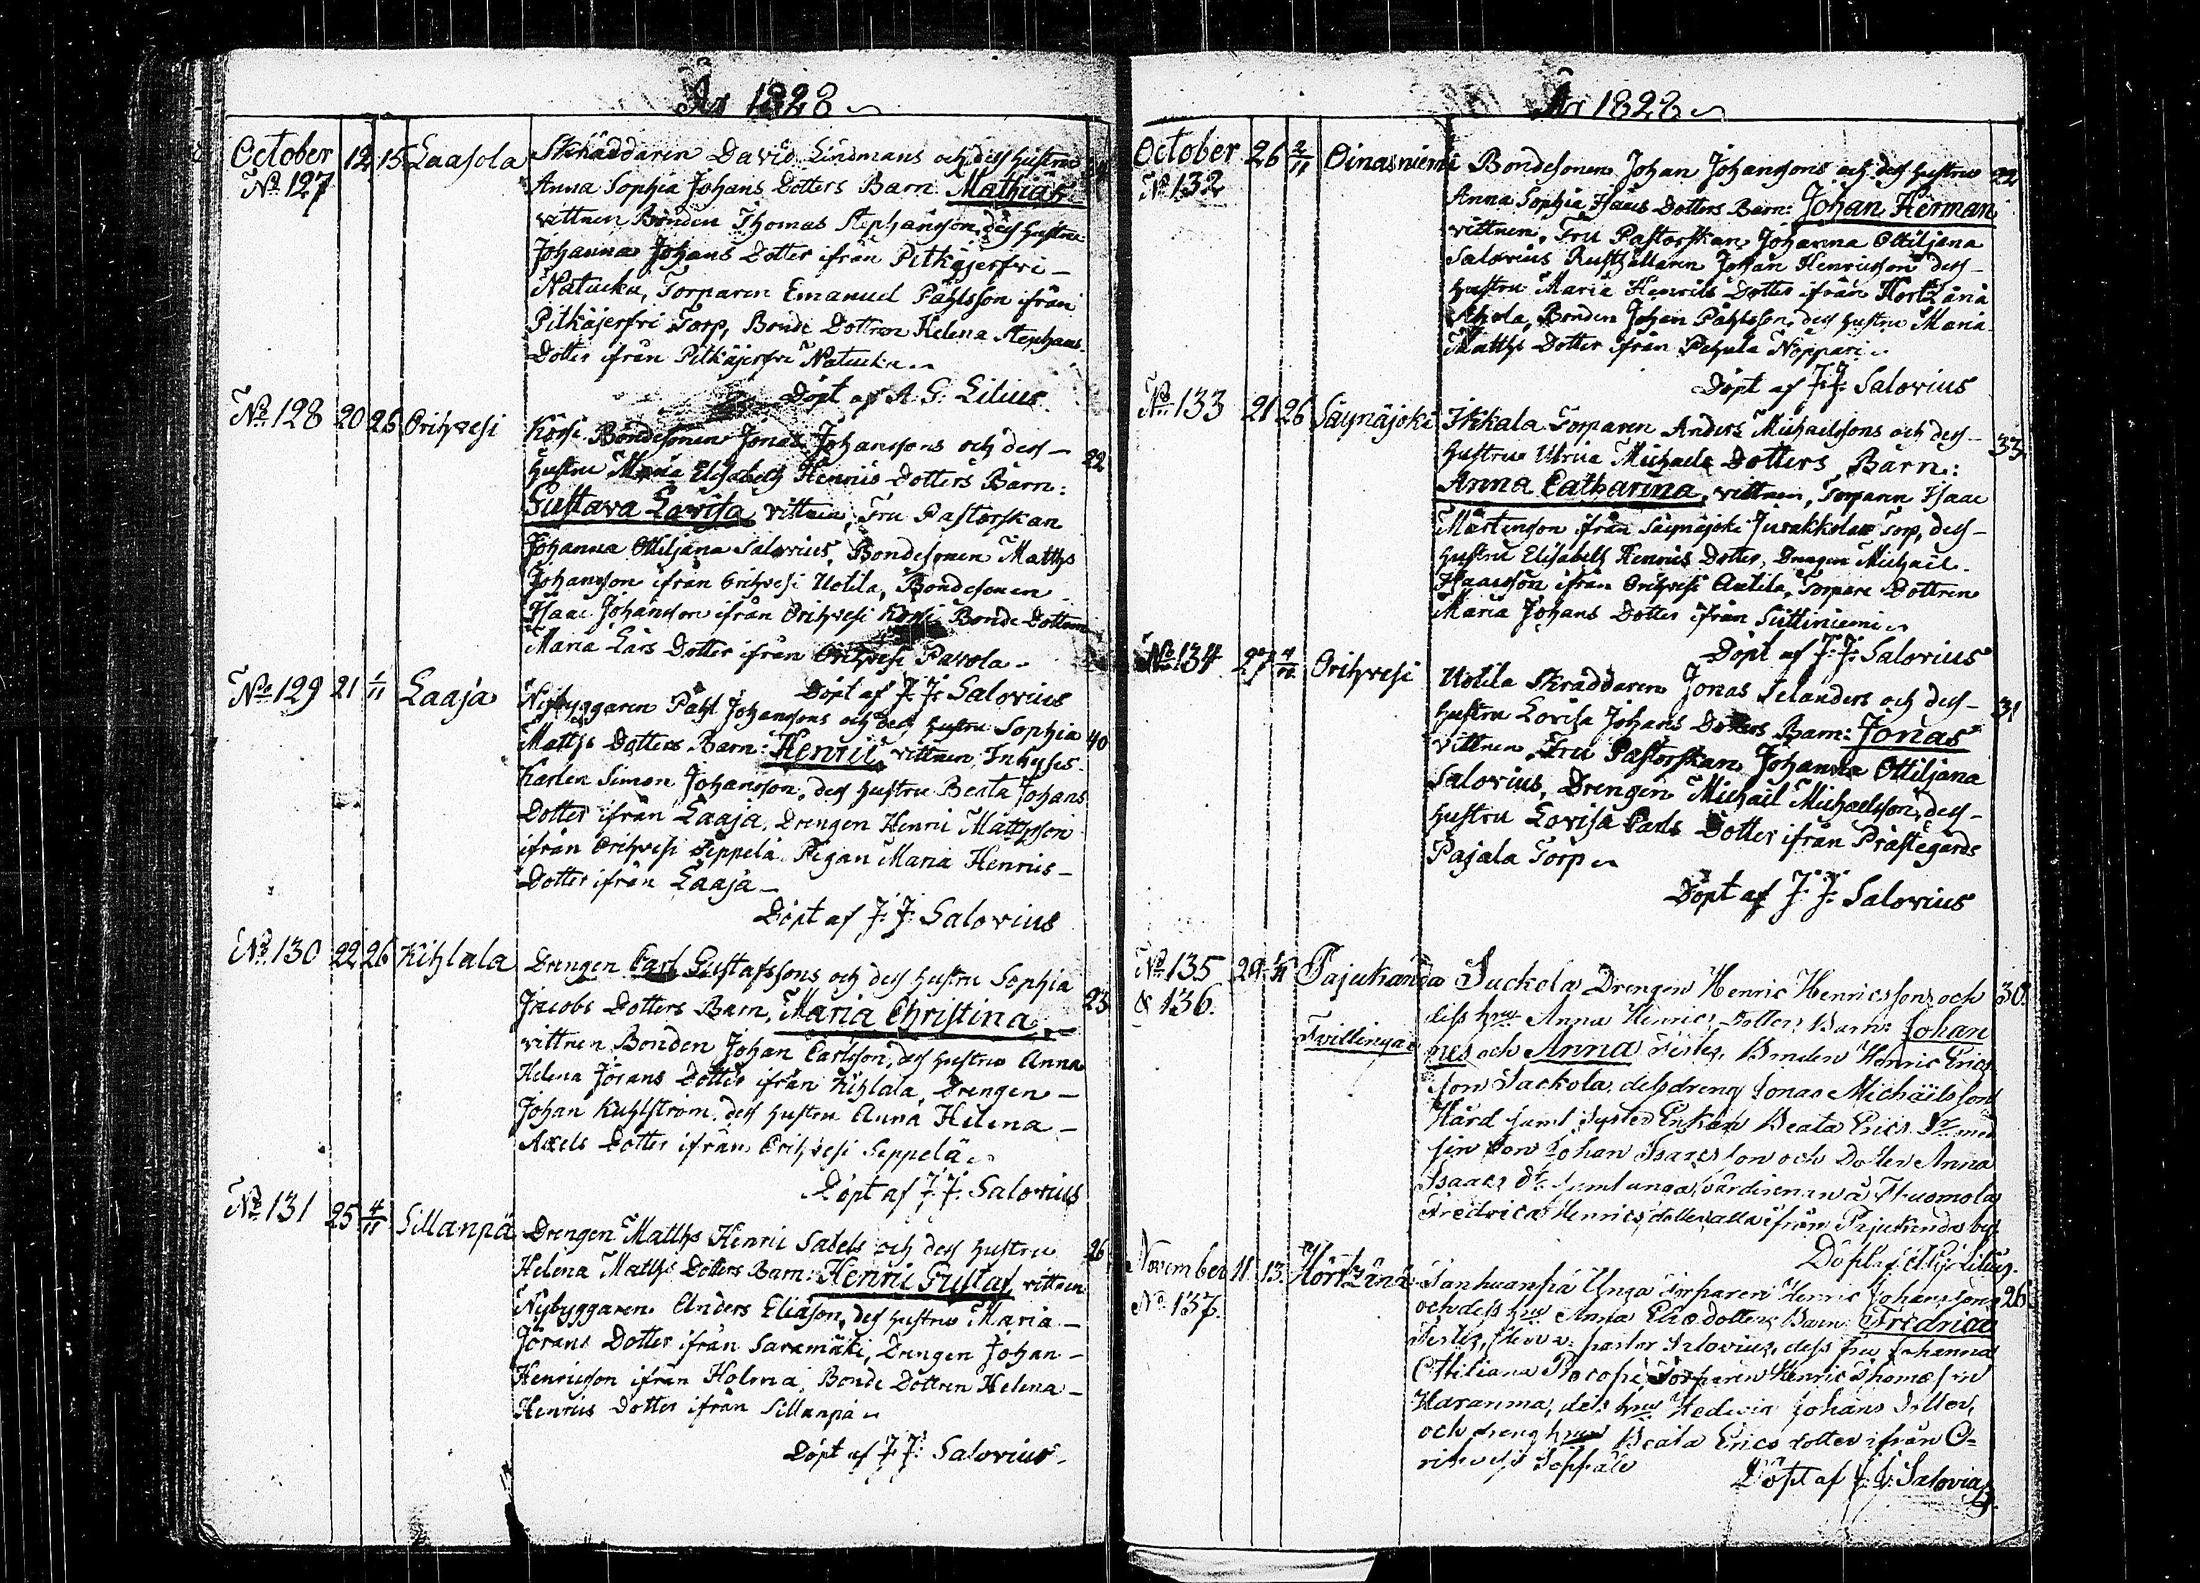 År 1828
October 12 15 Laasola Skräddaren David Lindmans och dess hustru
№ 127 Anna Sophia Johans Dotters Barn Mathias
vittnen Bonden Thomas Stephansson, dess hustru
Johanna Johans Dotter ifrån Pitkäjerfvi
Natucka, Torparen Emanuel Påhlsson ifrån
Pitkäjerfvi Torp, Bonde Dottren Helena Stephans
Dotter ifrån Pitkäjerfvi Natucka
Döpt af A. G. Lilius
№ 128 20 26 Orihvesi Korsi Bondesonen Jonas Johanssons och dess 22
hustru Maria Elisabeth Henrics Dotters Barn:
Gustava Lovisa vittnen, Fru Pastorskan
Johanna Ottiljana Salovius, Bondesonen Matths
Johansson ifrån Orihvesi Uotila, Bondesonen
Isaac Johansson ifrån Orihvesi Korsi Bonde Dottren
Maria Lars Dotter ifrån Orihvesi Pavola
Döpt af J. J. Salovius
№ 129 21 1/11 Laaja Nybyggaren Påhl Johanssons och dess hustru Sophia 40
Matths Dotters Barn: Henric vittnen, Inhyses
Karlen Simon Johansson, dess hustru Beata Johans
Dotter ifrån Laaja, Drengen Henric Matthsson
ifrån Orihvesi Seppelä Pigan Maria Henrics
Dotter ifrån Laaja
Döpt af J. J. Salovius
№ 130 22 26 Kihlala Drengen Carl Gustafssons och dess hustru Sophia
Jacobs Dotters Barn, Maria Christina 23
vittnen Bonden Johan Carlsson, dess hustru Anna
Helena Jörans Dotter ifrån Kihlala, Drengen
Johan Kuhlström, dess hustru Anna Helena
Axels Dotter ifrån Orihvesi Seppelä
Döpt af J. J. Salovius
№ 131 25 4/11 Sillanpä Drengen Matths Henric Sabels och dess hustru 26
Helena Matths Dotters Barn: Henric Gustaf, vittnen
Nybyggaren Anders Eliasson, dess hustru Maria
Jörans Dotter ifrån Saramäki, Drengen Johan
Henricsson ifrån Holma, Bonde Dottren Helena
Henrics Dotter ifrån Sillanpä
Döpt af J. J. Salovius
År 1828
October 26 2/11 Oinasniemi Bondesonen Johan Johanssons och dess hustru 22
№ 132 Anna Sophia Isaacs Dotters Barn: Johan Herman
vittnen, Fru Pastorskan Johanna Ottiljana
Salovius Rusthållaren Johan Henricsson dess
hustru Maria Henrics Dotter ifrån
Ahola, Bonden Johan Påhlsson, dess hustru Maria
Matths Dotter ifrån Pehula Noppari
Döpt af J. J. Salovius
№ 133 21 26 Säynäjoki Ikkala Torparen Anders Michaelssons och dess 33
hustru Ulrica Michaels Dotters Barn:
Anna Catharina, vittnen, Torparen Isaac
Mårtensson ifrån Säynäjoki Torp, dess
hustru Elisabeth Henrics Dotter, Drengen Michael
Isaacsson ifrån Orihvesi Anttila, Torpare Dottren
Maria Johans Dotter ifrån Süttiniemi
Döpt af J. J. Salovius
№ 134 27 Orihvesi Uotila Skräddaren Jonas Selanders och dess 31
hustru Lovisa Johans Dotters Barn: Jonas
vittnen Fru Pastorskan Johanna Ottiljana
Salovius, Drengen Michail Michaelsson, dess
hustru Lovisa Carls Dotter ifrån Prästegårds
Pajala Torp
Döpt af J. J. Salovius
№ 135 29 Pajukanda Suckola Drengen Henric Henricssons och 30
& 136. dess hru Anna Henrics dotters Barn: Johan
Tvillingar nes och Anna Testes, Bonden Henric Erics
son Sackola, dess dreng Jonas Michäilsson
Hård samt syster Enkan Beata Erics Dr med
sin son Johan Isacsson och Dotter Anna
Isaacs dr samt unga värdinnan å Thuomola
Fredrica Henrics dotter, alla ifrån Pajukanda by
Döpt af A. G. Lilius.
November 11. 13. Tanhuanpä Unga Torparen Henric Johanssons 26
№ 137. och dess hru Anna Ericsdotters Barn: Fredrica
Testes, Herr v. pastor Salovius, dess fru Johanna
Ottiliana Procopé, Torparen Henric Thomasson
Haranma, dess hru Hedwig Johans dotter,
och dreng hru Beata Erics dotter ifrån O-
rihvesi Seppälä
Döpt af J. J. Salovius